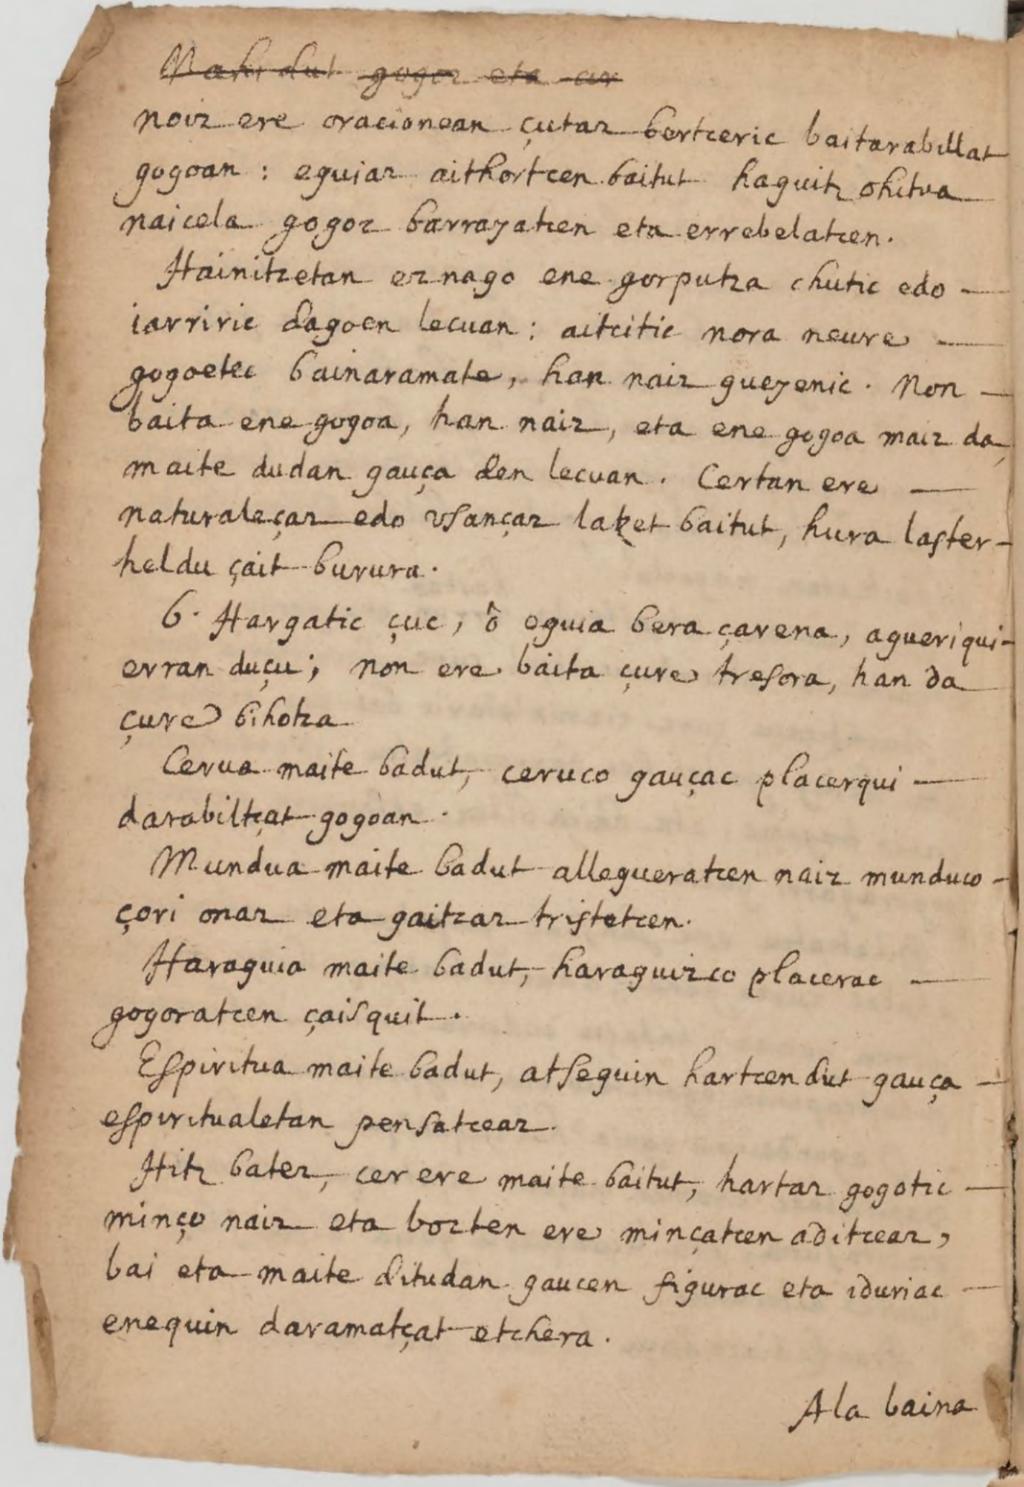 Nahi dut gogor eta ar
noiz ere oracionean çutaz bertceric baitarabillat
gogoan : eguiaz aithortcen baitut haguitz ohitua
naicela gogoz barrayatcen eta errebelatcen.
Hainitzetan ez nago ene gorputza chutic edo —
iarriric dagoen lecuan : aitcitic nora neure —
gogoetec bainaramate, han naiz gueyenic . Non —
baita ene gogoa, han naiz, eta ene gogoa maiz da,
maite dudan gauça den lecuan . Certan ere —
naturaleçaz edo vsançaz laket baitut, hura laster —
heldu çait burura .
6 . Hargatic çuc, ô eguia bera çarena, agueriqui —
erran duçu ; non ere baita çure tresora, han da
çure bihotza
Cerua maite badut, ceruco gauçac placerqui —
darabiltçat gogoan .
Mundua maite badut allegueratcen naiz munduco —
çori onaz eta gaitzaz tristetcen .
Haraguia maite badut, haraguizco placerac —
gogoratcen çaisquit .
Espiritua maite badut, atseguin hartcen dut gauça —
espiritualetan pensatceaz .
Hitz batez, cer ere maite baitut, hartaz gogotic —
minço naiz eta bozten ere minçatcen aditceaz ,
bai eta maite ditudan gaucen figurac eta iduriac —
enequin daramatçat etchera .
Ala baina